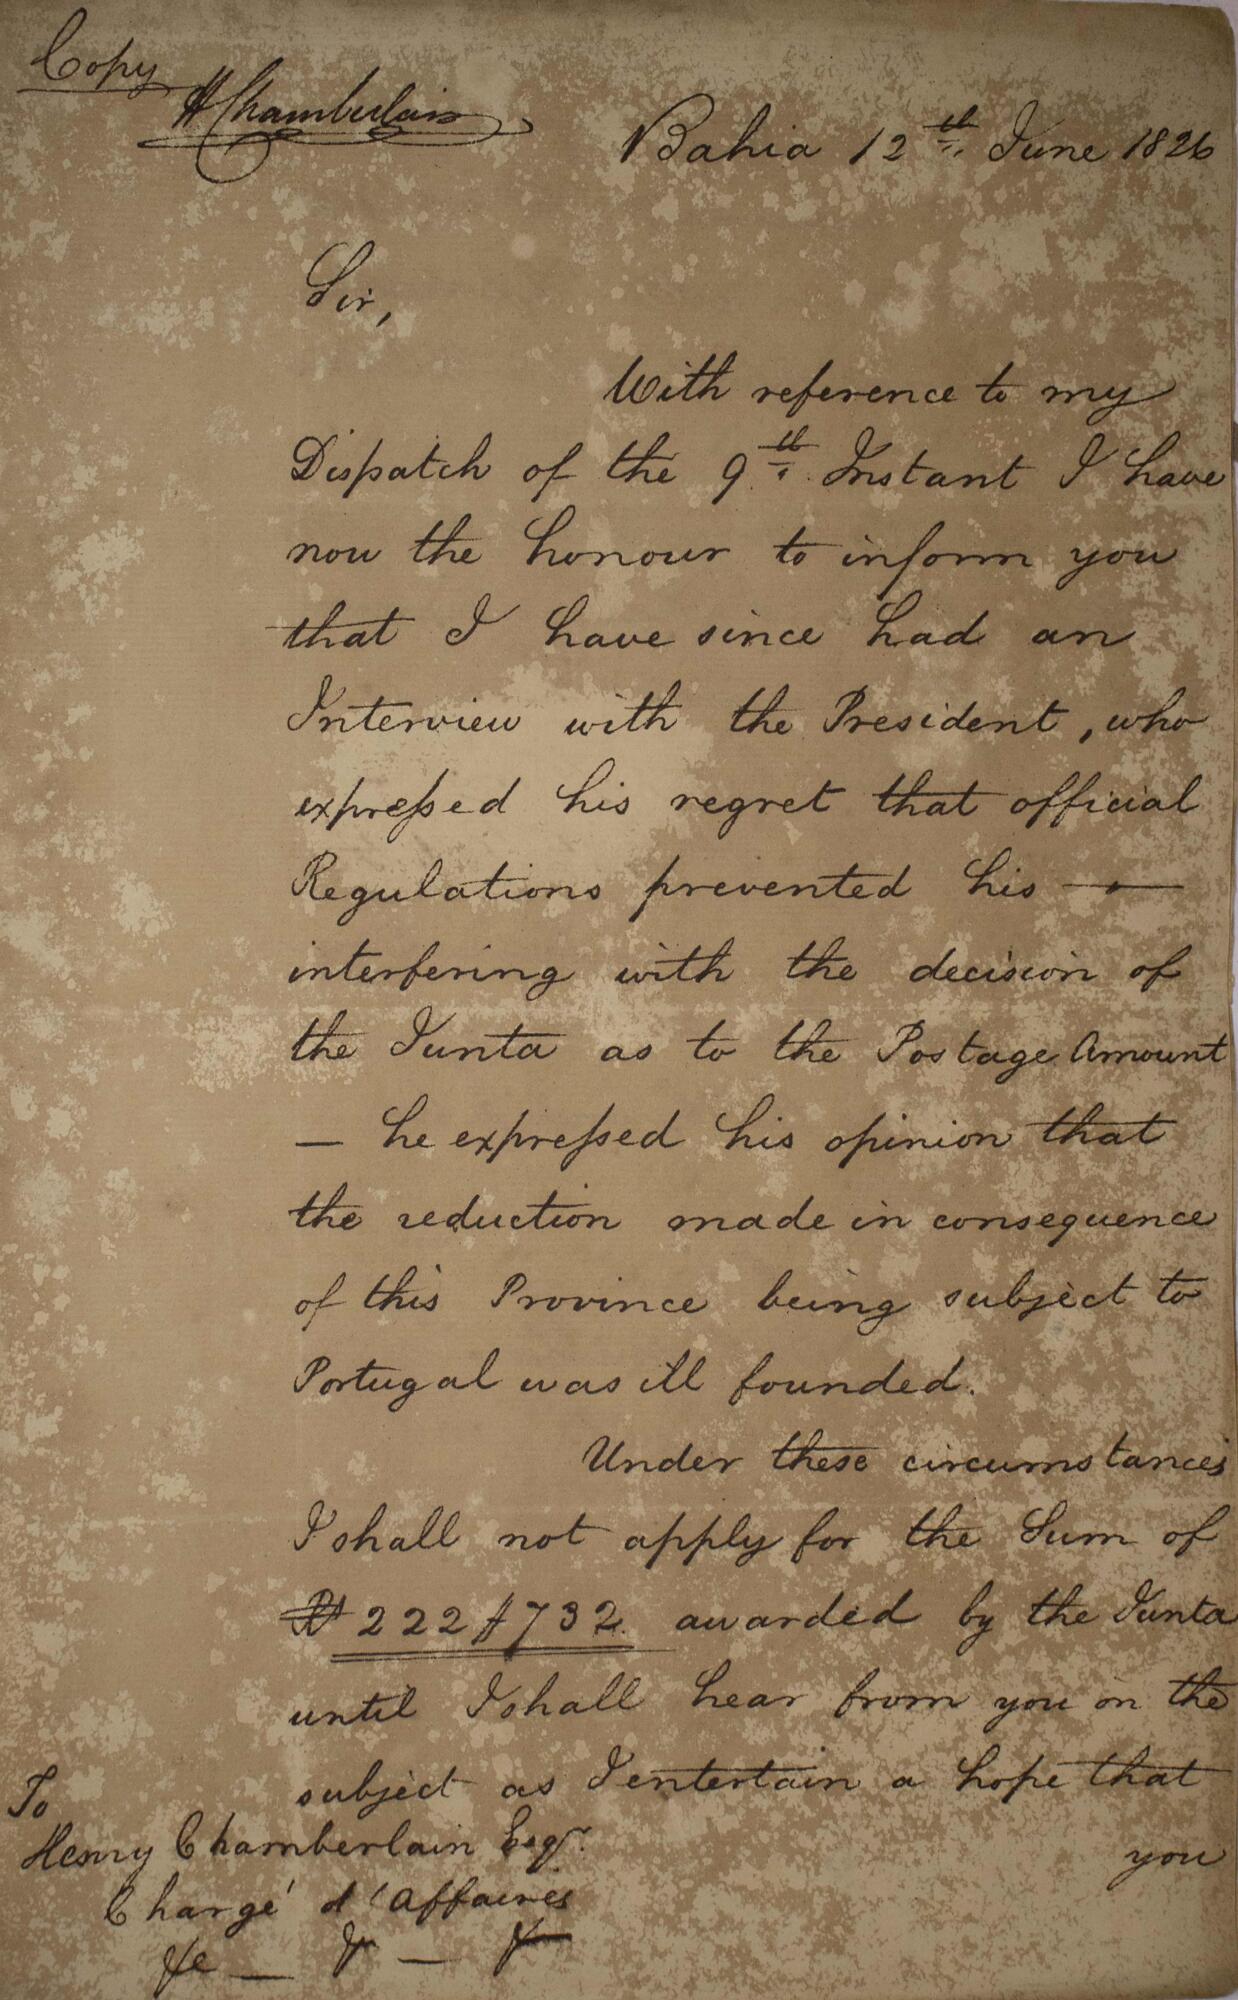 Copy
H Chamberlain
Bahia 12th June 1826
Sir,
With reference to my
Dispatch of the 9th Instant I have
now the honour to inform you
that I have since had an
Interview with the President, who
expreſsed his regret that official
Regulations prevented his —
interfering with the decision of
the Junta as to the Postage Amount
— he expreſsed his opinion that
the reduction made in consequence
of this Province being subject to
Portugal was ill founded.
Under these circumstances
I shall not apply for the Sum of
Rs 222$732 awarded by the Junta
until I shall hear from you on the
subject as I entertain a hope that
you
To
Henry Chamberlain Esqr.
Chargé d'Affaires
&c — &c — &c